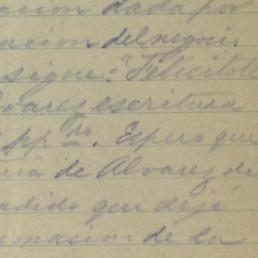 acion dada por
acion del negocio
sigue: "Felicitole
lvarez escritura
pp do. Espero que
de Alvarez de
adido que dejé
macion de la